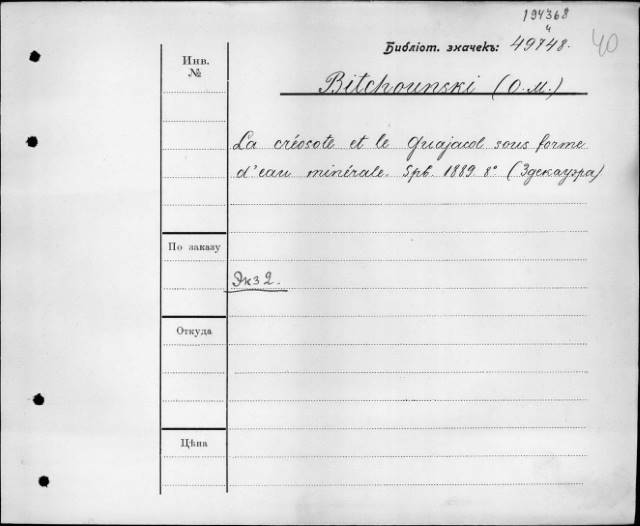 194368
и
Библіот. значекъ: 49748.
40
Инв.
№
Bitchounski (O. M.)
La créosote et le Guajacol sous forme
d'eau minérale. Spb. 1889. 8° (Здекауэра)
По заказу
Экз 2.
Откуда
Цѣна